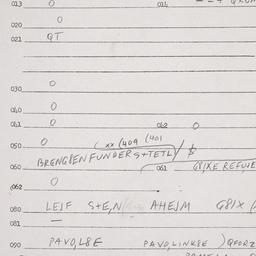 013 O 014
020 O
021 QT
030 O
040 O
041 O 042 O
050 O (xx (409 (401
060 BRENGLEN FUNDERS+TETL/ $
061 G8/XE REFUIE
062 O
080 LEIF S+E,N AHEIM G8/X
081 —
090 PAVO,L8E PAVO,LINK8E )QFORZ